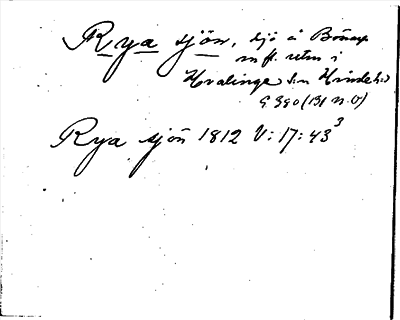 Rya sjön, sjö å Bönarp
m fl. utm i
Hvalinge sn Himle hd
G 380 (131 n. O)
Rya sjön 1812 V:17:43³